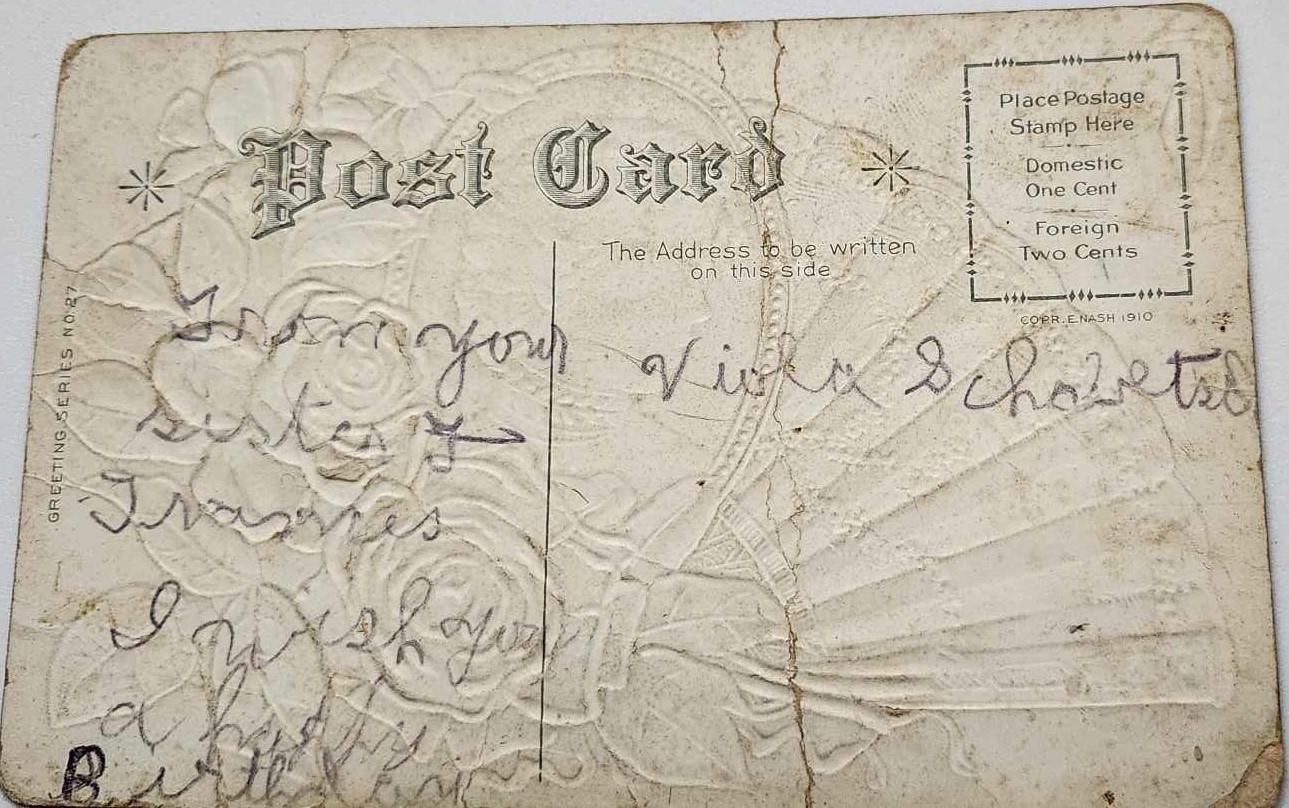 Post Card
Place Postage
Stamp Here
Domestic
One Cent
Foreign
Two Cents
COPR. E. NASH 1910
The Address to be written
on this side
GREETING SERIES NO. 27
From your
sister
I wish you
a
Birthday
Viola